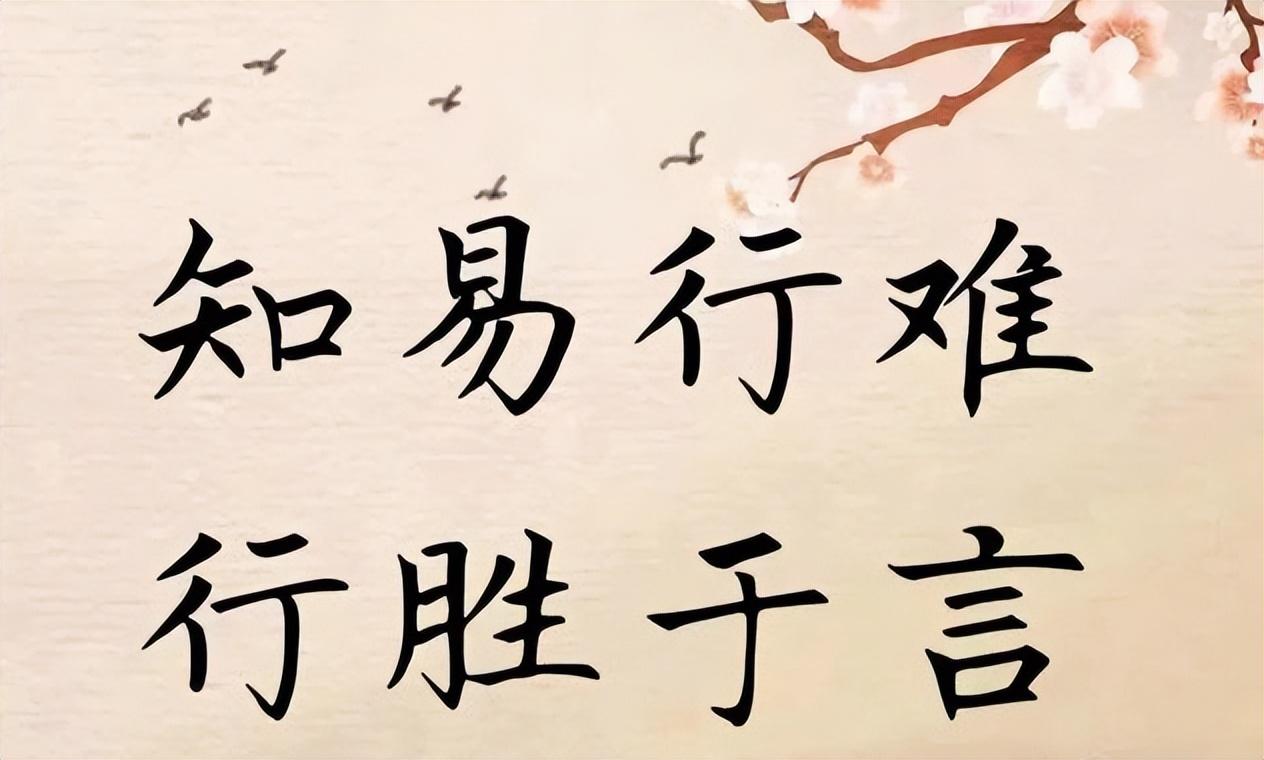 知易行难
行胜于言